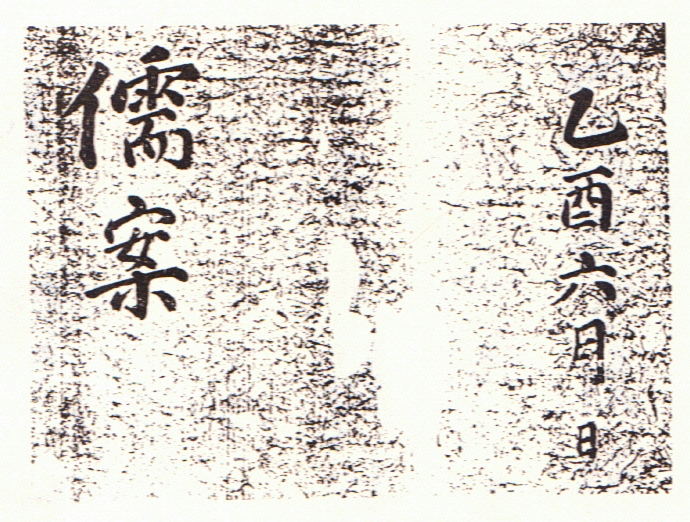 乙酉六月 日
儒案